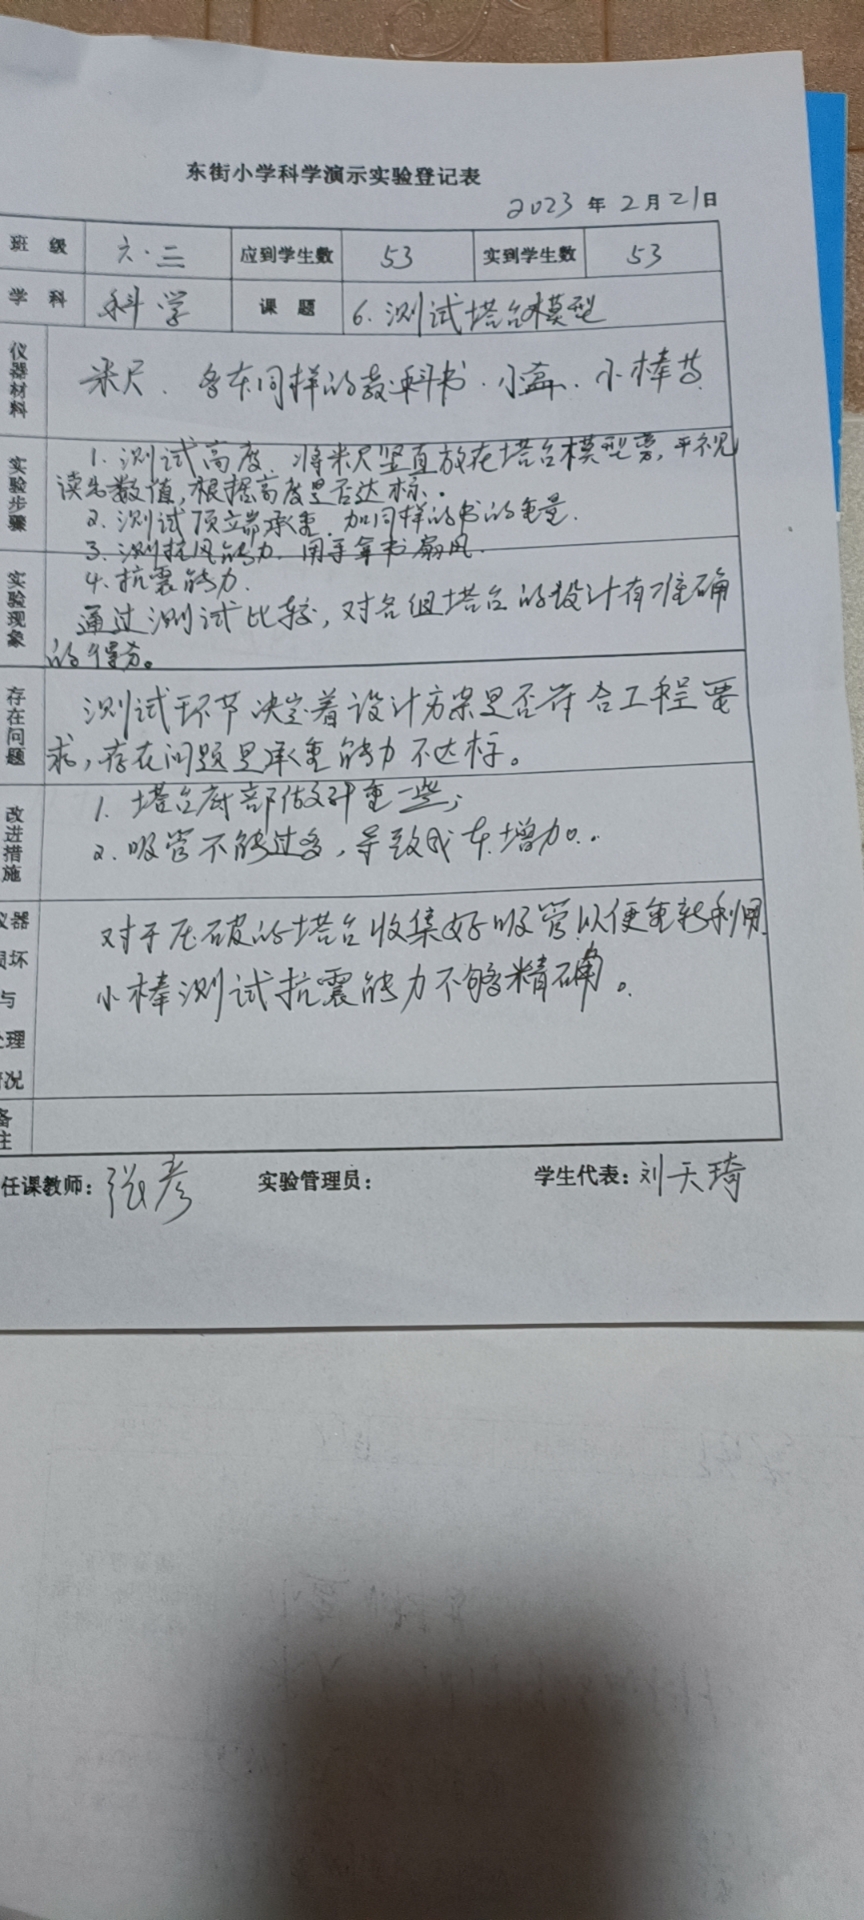 东街小学科学演示实验登记表
2023 年 2 月 21 日
班 级 六.三 应到学生数 53 实到学生数 53
学 科 科学 课 题 6.测试塔台模型
仪器材料 米尺、多本同样的教科书、小扇、小棒等
实验步骤 1.测试高度、将米尺竖直放在塔台模型旁,平视
读出数值,根据高度是否达标.
2.测试顶端承重、加同样的书的重量.
3.测抗风能力、用手拿书扇风.
4.抗震能力.
实验现象 通过测试比较,对各组塔台的设计有准确
的得分。
存在问题 测试环节决定着设计方案是否符合工程要
求,存在问题是承重能力不达标。
改进措施 1.塔台底部做得重一些;
2.吸管不能过多,导致成本增加。
仪器 对于压破的塔台收集好吸管,以便重新利用.
损坏 小棒测试抗震能力不够精确。
与
处理
情况
备注
任课教师: 张彦 实验管理员: 学生代表: 刘天琦